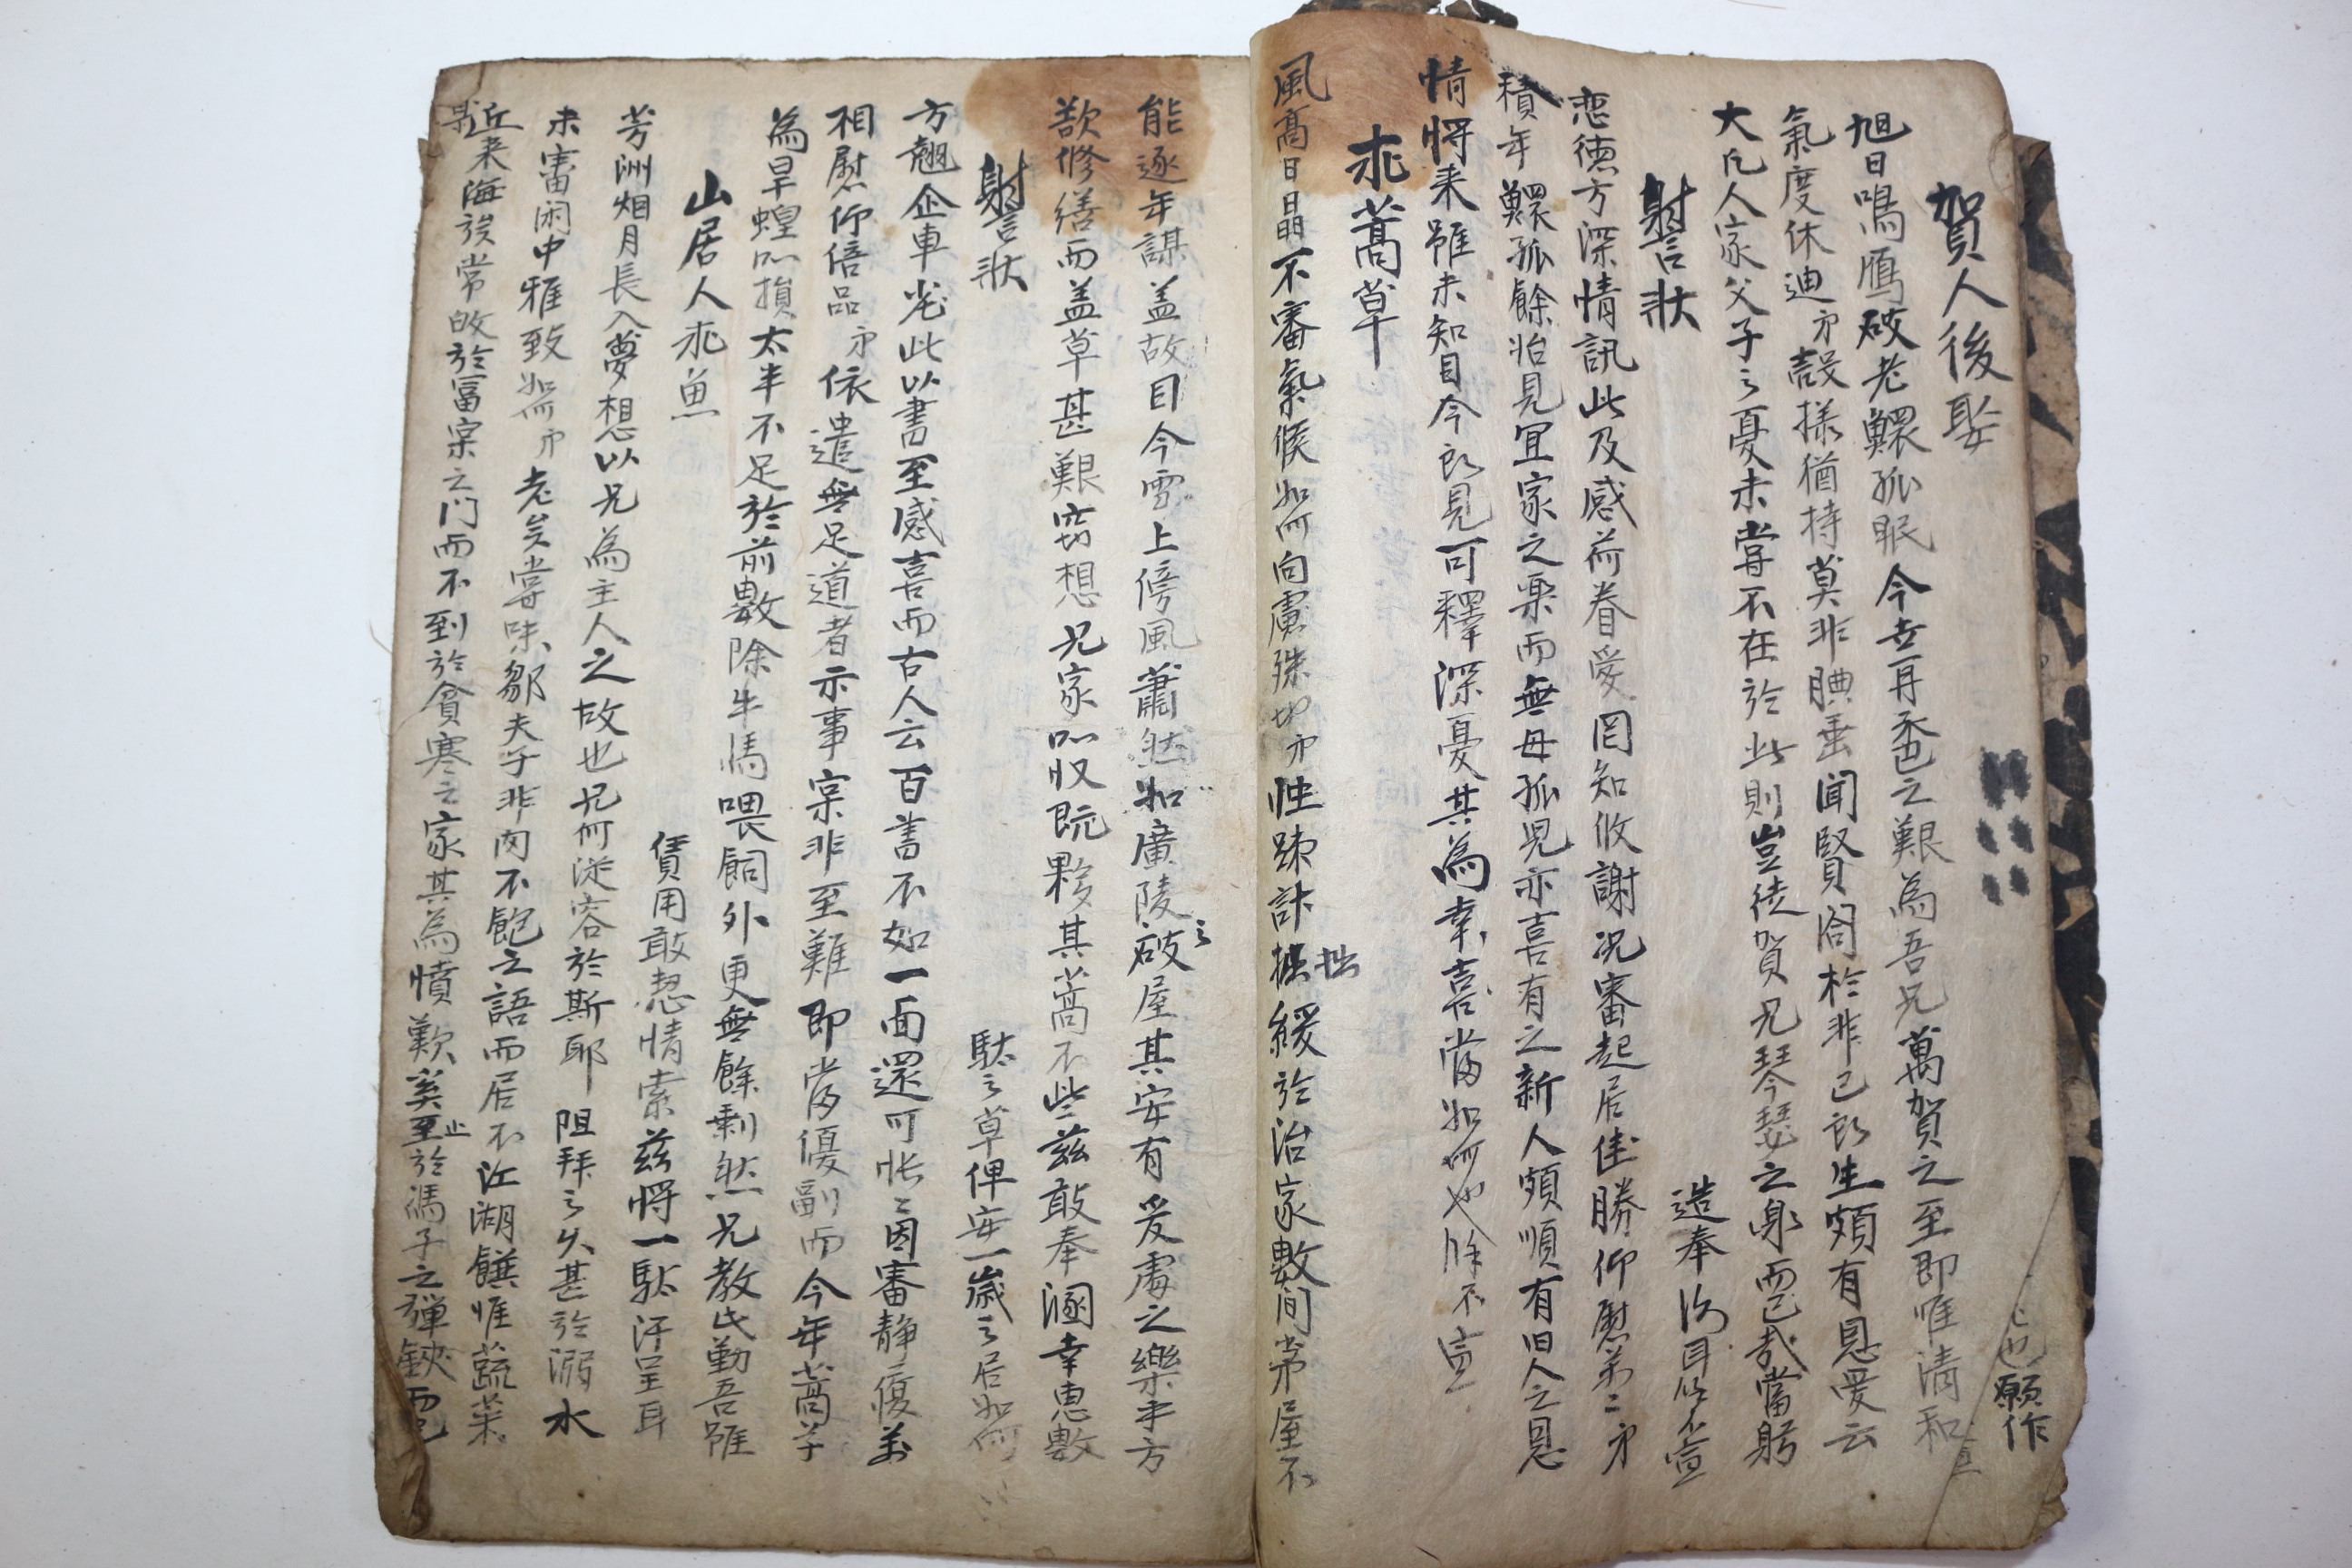 賀人後娶
旭日鳴鴈破老鰥孤眠今去再丞之艱為吾兄萬賀之至即唯淸和
氣度休迪弟殼㨾猶持莫非腆垂聞賢閤於非己所生頗有恩愛云
大凡人家父子之憂未嘗不在於此則豈徒賀兄琴瑟之樂而已哉當躬
造奉洽耳姑不宣
謝狀
戀德方深情訊此及感荷眷愛罔知攸謝況審起居佳勝仰慰第二弟
積年鰥孤餘始見冝家之樂而無母孤児亦喜有之新人頗順有旧人之恩
情將来雖未知目今所見可釋深憂其為幸喜當如何也餘不宣
乖蒿草
風髙日晶不審氣候如何向慮殊切弟性踈計拙緩於治家數間茅屋不
願作
能逐年謀盖故目今雪上傍風蕭然如廣陵之破屋其安有爰處之樂乎方
欲修繕而盖草甚艱窃想兄家所収既夥其蒿不些兹敢奉溷幸惠數
駄之草俾安一歲之居如何
謝狀
方翹企車光此以書至感喜而古人云百書不如一面還可悵〻因審静履萬
相慰仰倍品弟依遣無足道者示事宲非至難即當優副而今年蒿草
為旱蝗所損太半不足於前數除牛馬喂飼外更無餘剩然兄敎氏勤吾雖
賃用敢恝情索兹將一駄汗呈耳
山居人乖魚
芳洲烟月長入夢想以兄為主人之故也兄何從容於斯耶阻拜之久甚於溺水
未審闲中雅致如何弟老矣嘗味鄒夫子非肉不飽之語而居不江湖饌惟蔬菜
近来海族常㪅於冨宲之门而不到於貪寒之家其為憤歎奚至止於馮子之彈鋏而已